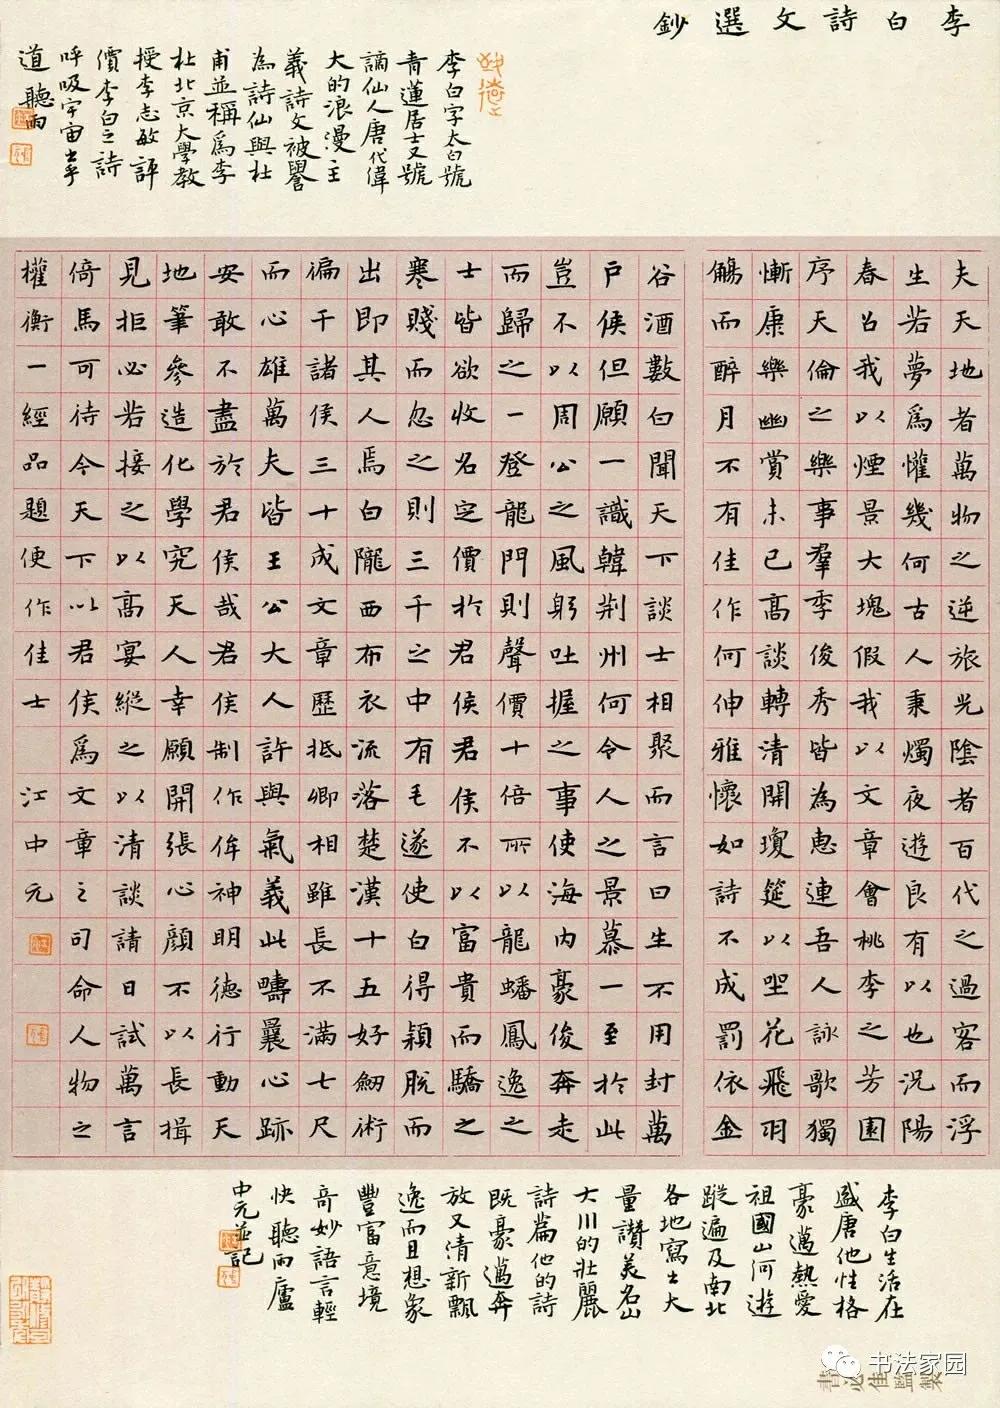 李白詩文選鈔
李白字太白號
青蓮居士又號
謫仙人唐代偉
大的浪漫主
義詩文被譽
為詩仙與杜
甫並稱爲李
杜北京大學教
授李志敏評
價李白之詩
呼吸宇宙出乎
道聽雨
夫天地者萬物之逆旅光陰者百代之過客而浮
生若夢爲懽幾何古人秉燭夜遊良有以也況陽
春召我以煙景大塊假我以文章會桃李之芳園
序天倫之樂事羣季俊秀皆為惠連吾人詠歌獨
慚康樂幽賞未已高談轉清開瓊筵以坐花飛羽
觴而醉月不有佳作何伸雅懷如詩不成罰依金
谷酒數白聞天下談士相聚而言曰生不用封萬
戶侯但願一識韓荊州何令人之景慕一至於此
豈不以周公之風躬吐握之事使海內豪俊奔走
而歸之一登龍門則聲價十倍所以龍蟠鳳逸之
士皆欲收名定價於君侯君侯不以富貴而驕之
寒賤而忽之則三千之中有毛遂使白得穎脫而
出即其人焉白隴西布衣流落楚漢十五好劒術
徧干諸侯三十成文章歷抵卿相雖長不滿七尺
而心雄萬夫皆王公大人許與氣義此疇曩心跡
安敢不盡於君侯哉君侯制作侔神明德行動天
地筆參造化學究天人幸願開張心顏不以長揖
見拒必若接之以高宴縱之以清談請日試萬言
倚馬可待今天下以君侯爲文章之司命人物之
權衡一經品題便作佳士 江中元
李白生活在
盛唐他性格
豪邁熱愛
祖國山河遊
蹤遍及南北
各地寫出大
量讚美名山
大川的壯麗
詩篇他的詩
既豪邁奔
放又清新飄
逸而且想象
豐富意境
奇妙語言輕
快聽雨廬
中元並記
书法家园